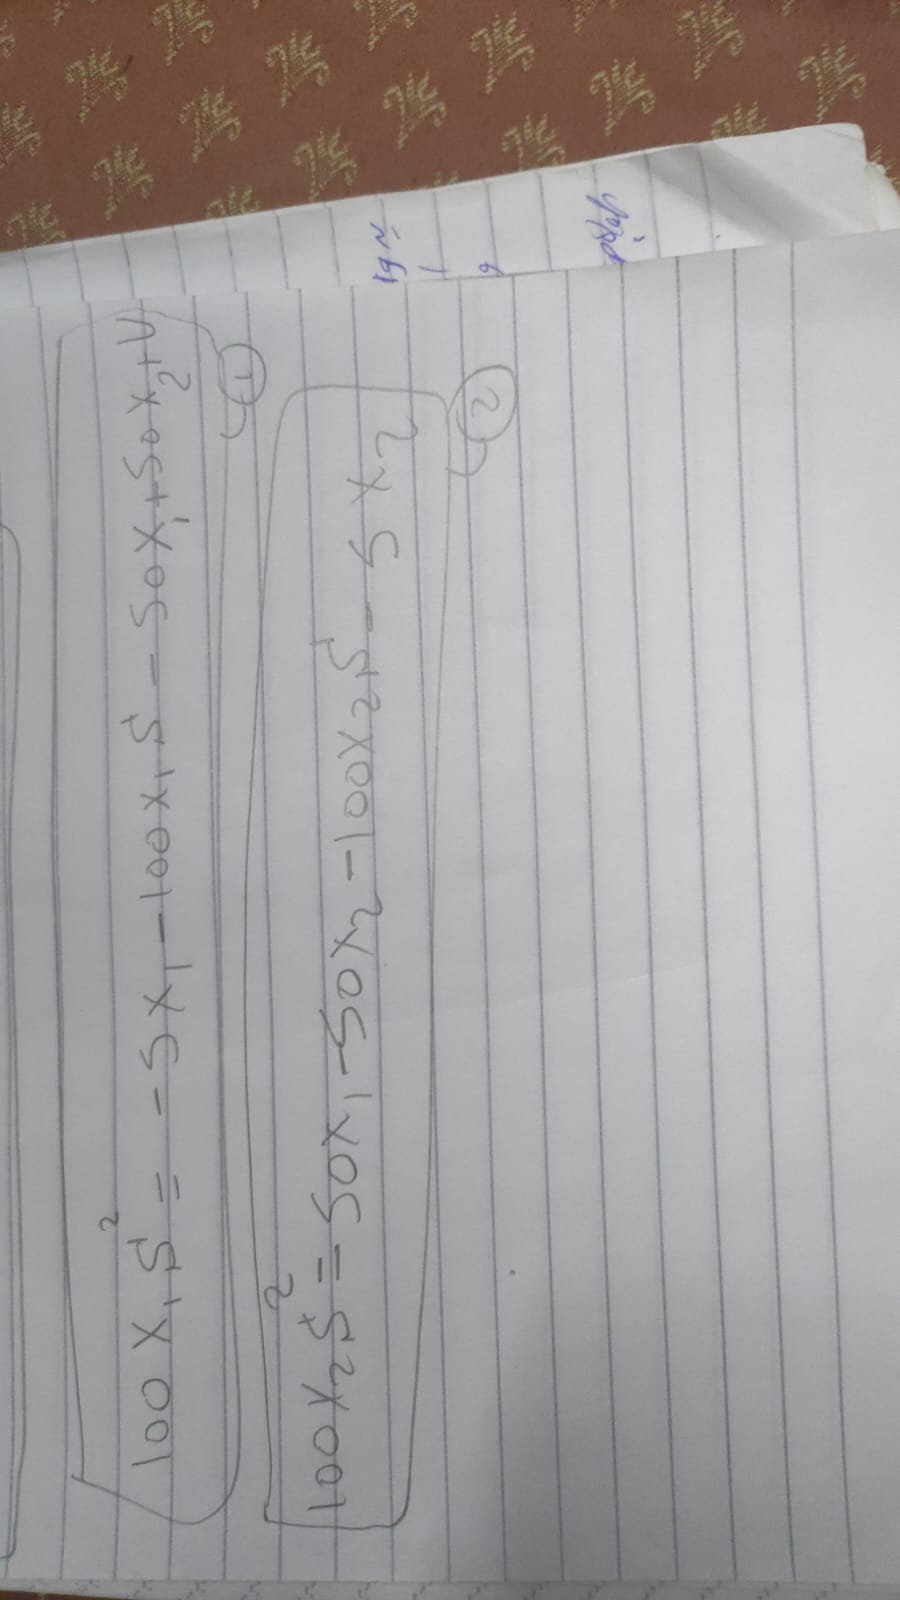 100 X₁ S² = -5X₁ - 100X₁ S - 50X₁ + 50X₂ + U
①
100X₂ S² = 50X₁ - 50X₂ - 100X₂ S - 5X₂
②